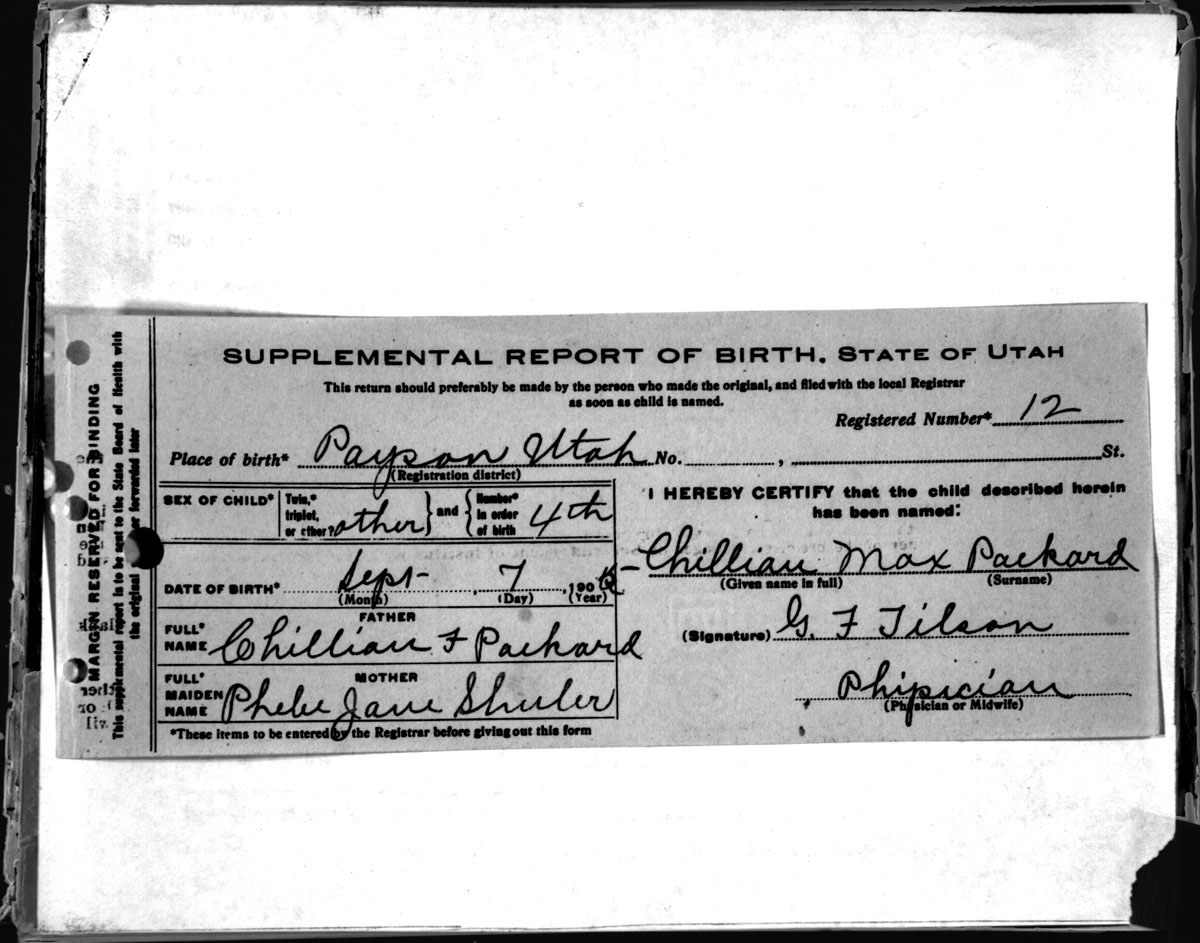 SUPPLEMENTAL REPORT OF BIRTH. STATE OF UTAH
This return should preferably be made by the person who made the original, and filed with the local Registrar
as soon as child is named.
Registered Number* 12
Place of birth* Payson Utah No. , St.
(Registration district)
SEX OF CHILD* Twin,* triplet, or other? other } and { Number* in order of birth 4th
DATE OF BIRTH* Sept 7, 190
(Month) (Day) (Year)
FATHER
FULL* NAME Chillian F Packard
MOTHER
FULL* MAIDEN NAME Phebe Jane Shuler
*These items to be entered by the Registrar before giving out this form
I HEREBY CERTIFY that the child described herein
has been named:
Chillian Max Packard
(Given name in full) (Surname)
(Signature) G. F Tilson
Phipician
(Physician or Midwife)
MARGIN RESERVED FOR BINDING
This supplemental report is to be sent to the State Board of Health with
the original or forwarded later